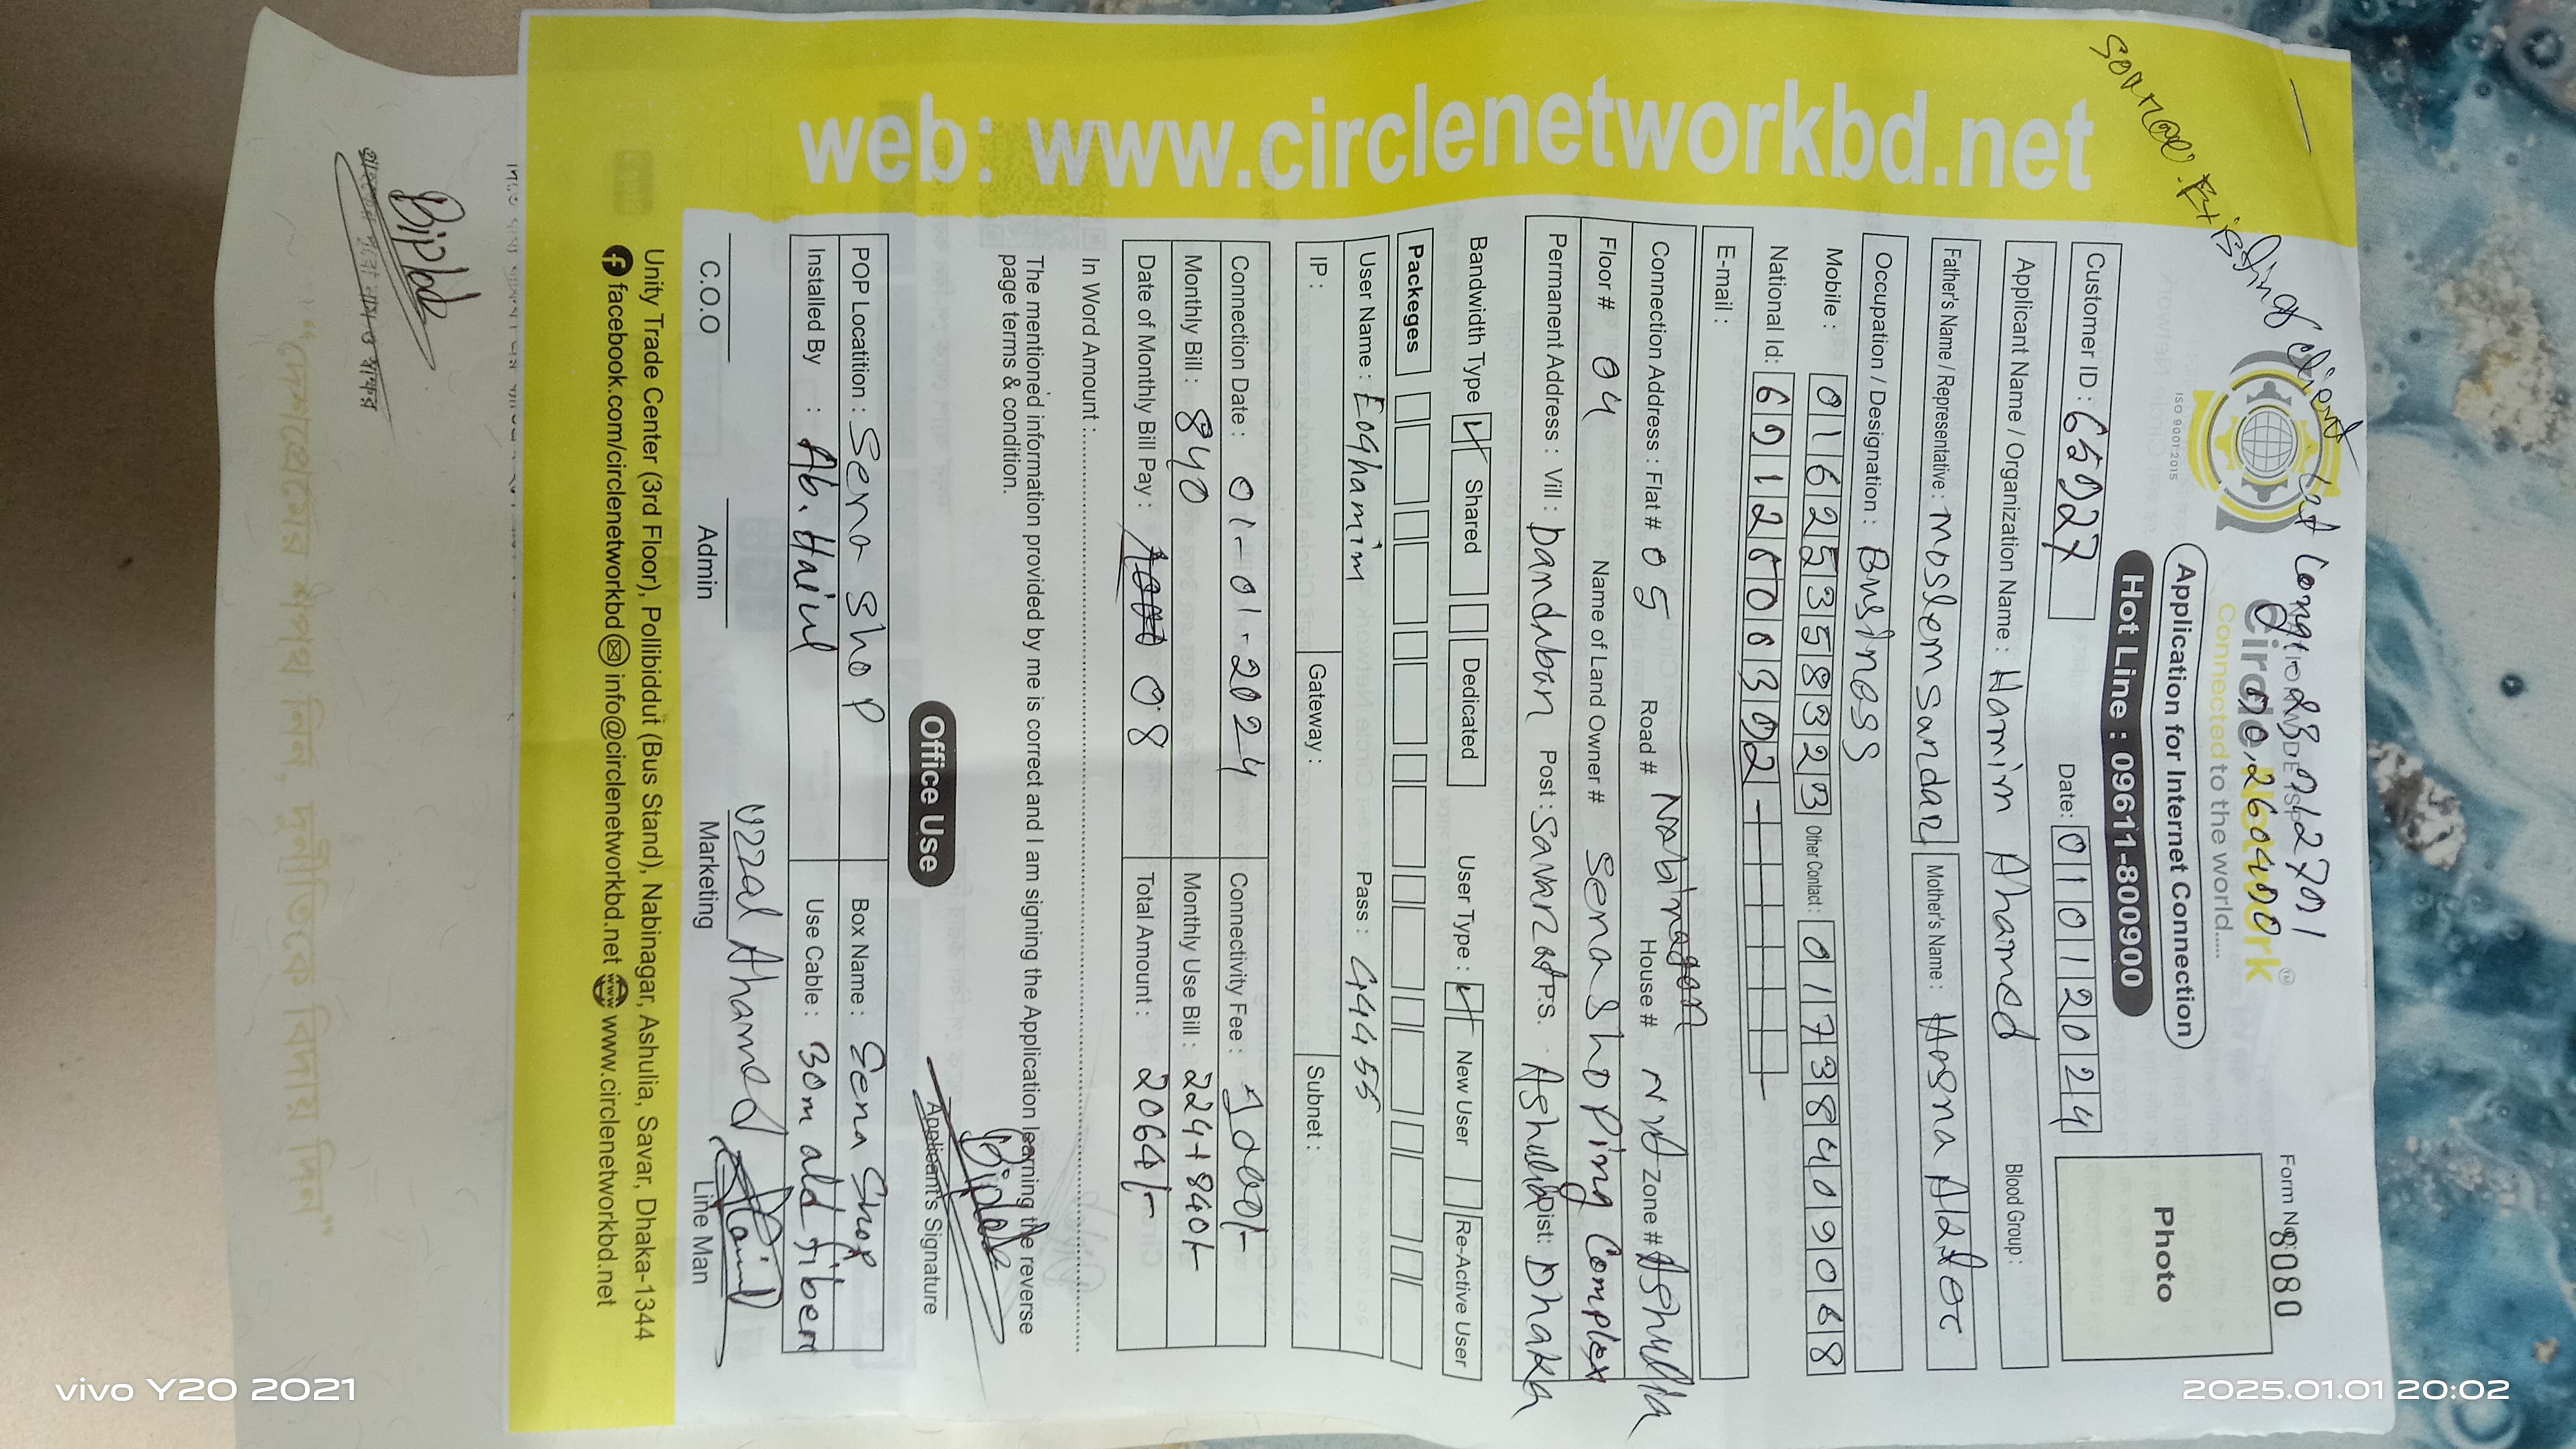 Form No 8080
Source: Existing Client
Circle Network
Connected to the world.....
ISO 9001:2015
Application for Internet Connection
Hot Line : 09611-800900
Photo
Customer ID : 65027 Date: 01012024
Applicant Name / Organization Name : Hamim Ahamed Blood Group :
Father's Name / Representative : Moslem Sardar Mother's Name :
Occupation / Designation : Business
Mobile : 01625358323 Other Contact : 01738409068
National Id:
E-mail :
Connection Address : Flat # 05 Road # Nabinagar House # Zone # Ashulia
Floor # 04 Name of Land Owner # Sena Shoping Complex
Permanent Address : Vill : Post : Savar P.S. Ashulia Dist: Dhaka
Bandwidth Type Shared Dedicated User Type : New User Re-Active User
Packeges
User Name : Eqhamim Pass : 44455
IP : Gateway : Subnet :
Connection Date : 01-01-2024 Connectivity Fee : 1000/-
Monthly Bill : 840 Monthly Use Bill : 224+840/-
Date of Monthly Bill Pay : 08 Total Amount : 2064/-
In Word Amount :
The mentioned information provided by me is correct and I am signing the Application learning the reverse
page terms & condition.
Biplob
Applicant's Signature
Office Use
POP Locatition : Sena Shop Box Name : Sena Shop
Installed By : Ab. Haiul Use Cable : 30m old fiber
Uzzal Ahamed
C.O.O Admin Marketing Line Man
Unity Trade Center (3rd Floor), Pollibiddut (Bus Stand), Nabinagar, Ashulia, Savar, Dhaka-1344
facebook.com/circlenetworkbd info@circlenetworkbd.net www.circlenetworkbd.net
web: www.circlenetworkbd.net
Biplob
গ্রাহকের পুরো নাম ও স্বাক্ষর
“দেশপ্রেমের শপথ নিন, দুর্নীতিকে বিদায় দিন”
vivo Y20 2021
2025.01.01 20:02